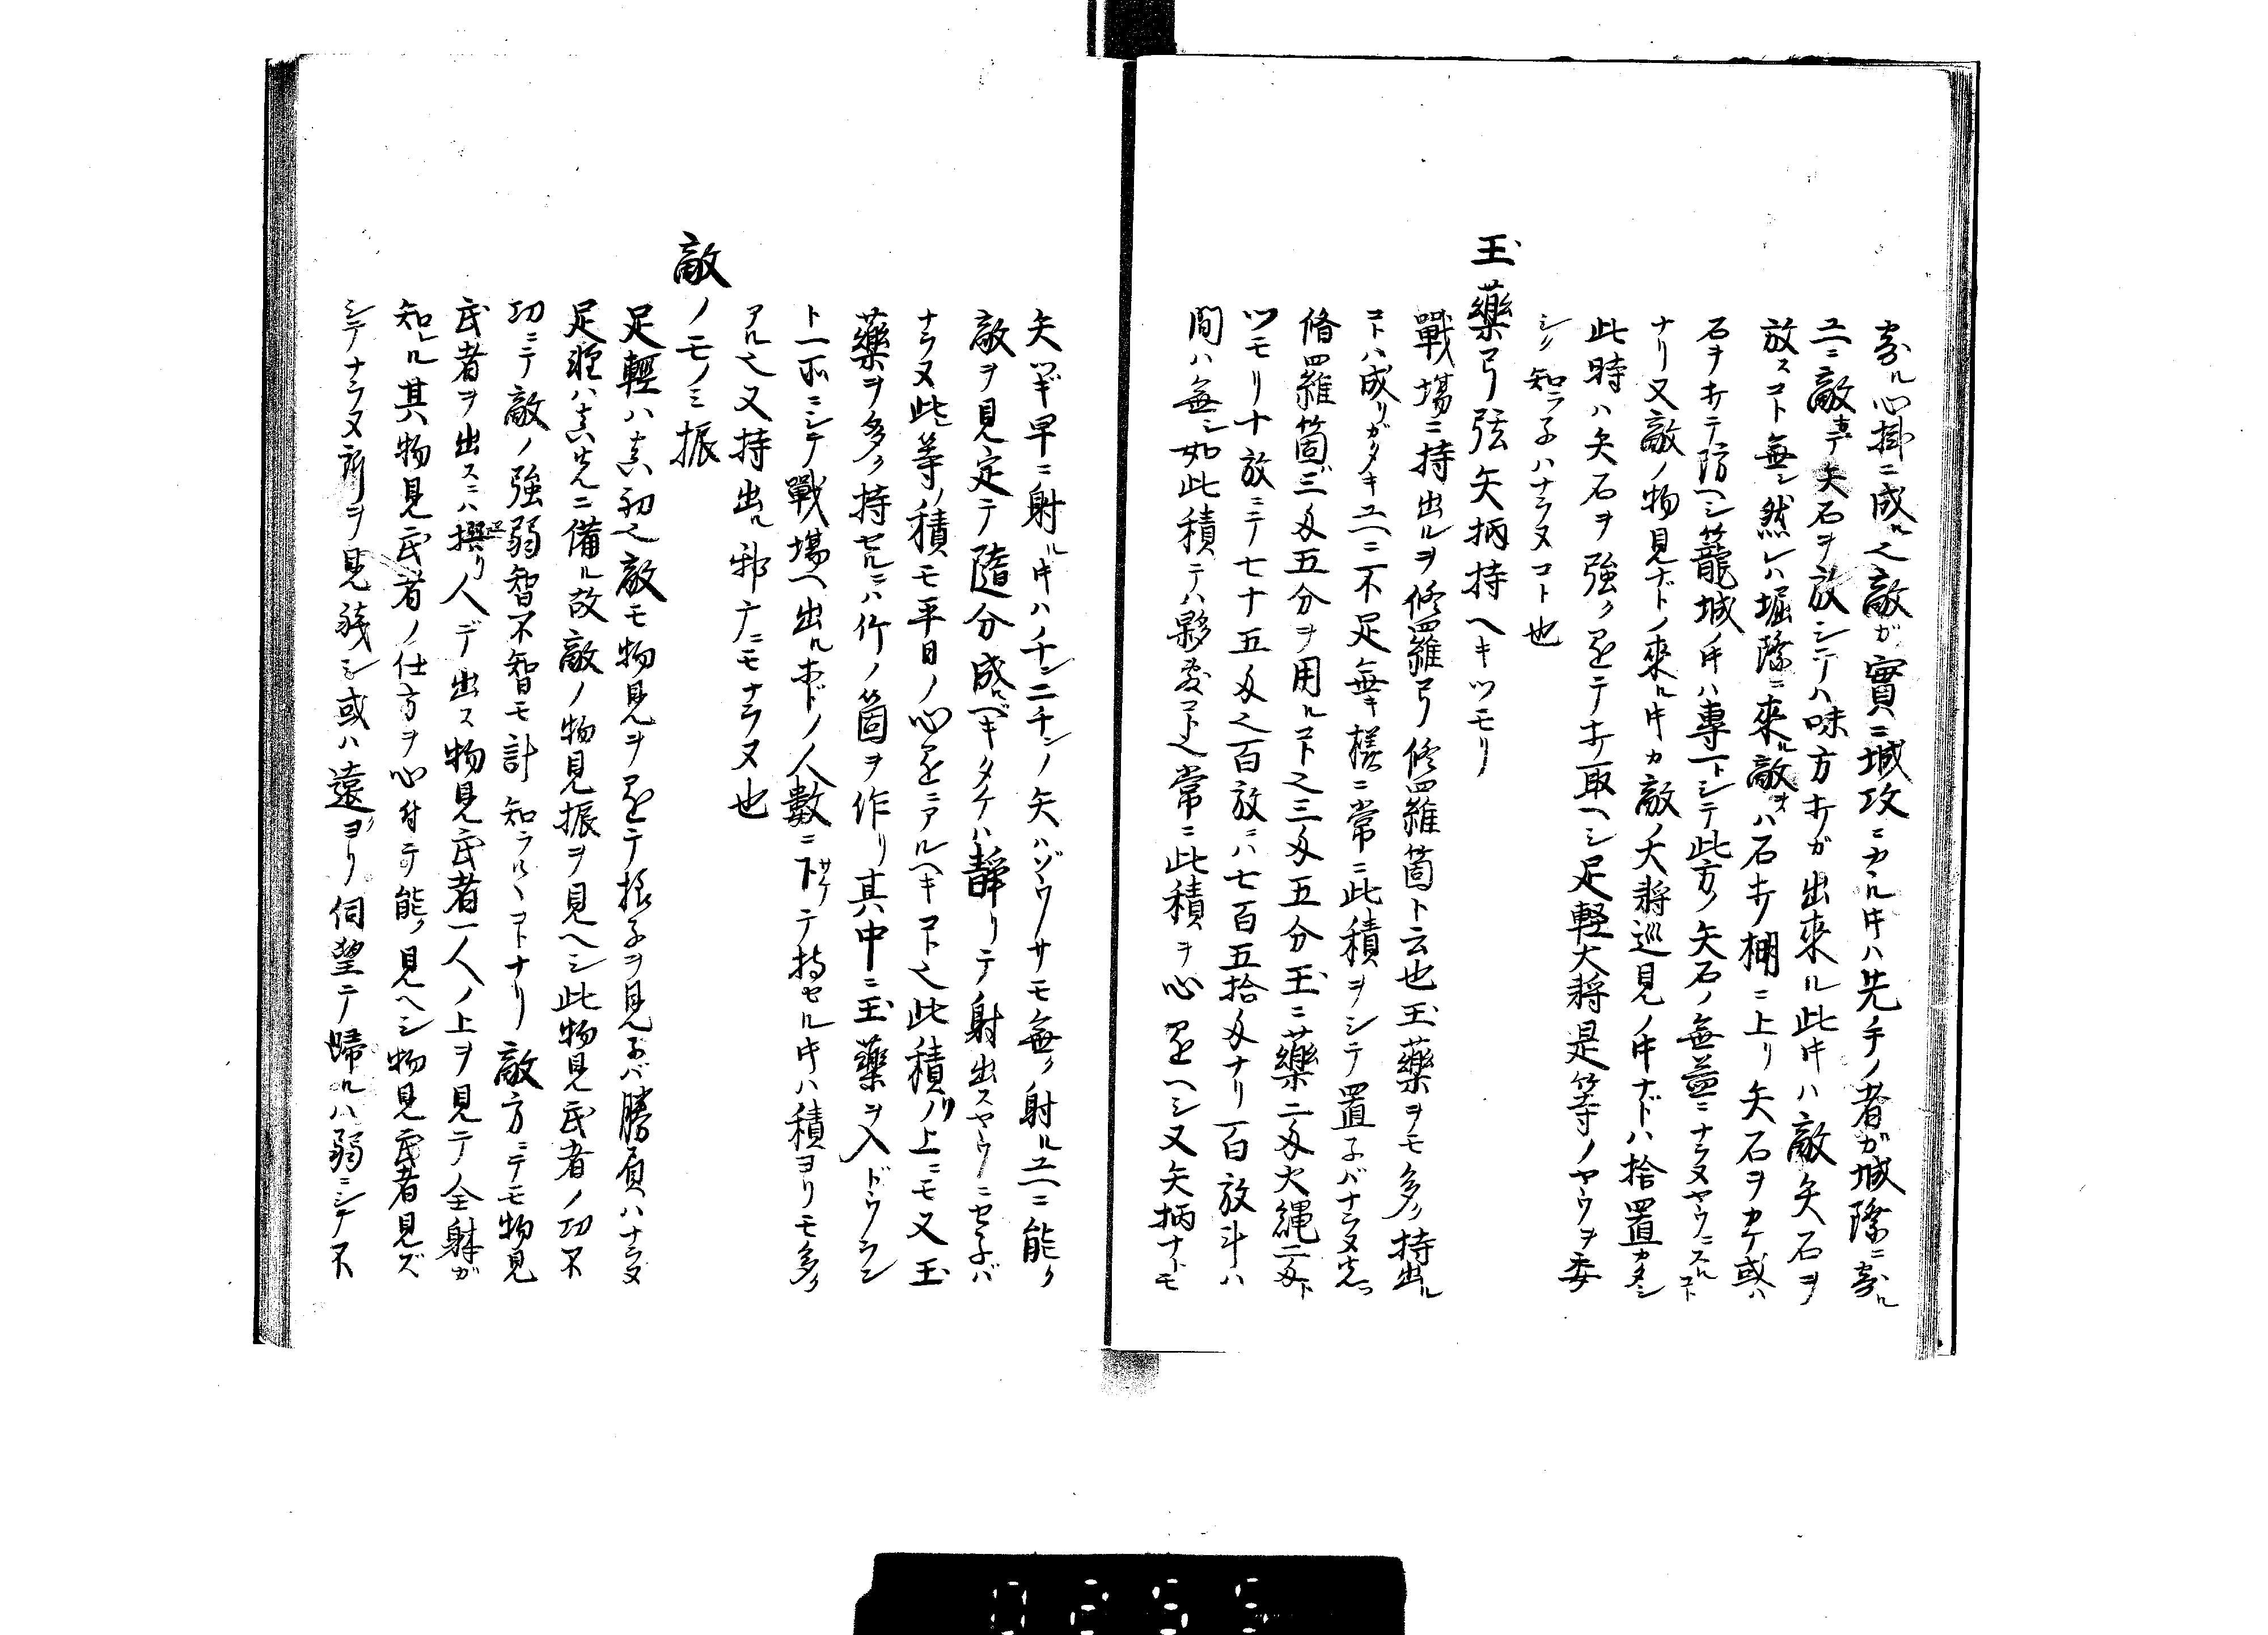 寄ル心掛ニ成ル之敵ガ實ニ城攻ニカヽル片ハ先手ノ者ガ城際ニ寄ル
ユニ敵専テ矢石ヲ放シテハ味方キガ出來ル此片ハ敵矢石ヲ
放スコト無シ然レハ堀際ニ來ル敵オハ石キノ棚ニ上リ矢石ヲカケ或ハ
石ヲキテ防ヘシ籠城ノ片ハ専一トシテ此方ノ矢石ノ無益ニナラヌヤウニスルコト
ナリ又敵ノ物見ナドノ來ル片カ敵ノ大将巡見ノ片ナドハ捨置カタシ
此時ハ矢石ヲ強ク遠テキ取ヘシ足軽大将是等ノヤウヲ委
シク知ラ子ハナラヌコト也
玉藥弓弦矢柄持ヘキツモリ
戰場ニ持出ルヲ修羅弓修羅箇ト云也玉藥ヲモ多ク持出ル
コトハ成リガタキユヘニ不足無キ様ニ常ニ此積ヲシテ置子バナラヌ先ツ
脩羅箇ニ三匁五分ヲ用ルコト之三匁五分玉ニ藥二匁火縄二匁ト
ツモリ十放ニテ七十五匁之百放ニハ七百五拾匁ナリ一百放斗ハ
間ハ無シ如此積テハ夥敷コト之常ニ此積ヲ心遠ヘシ又矢柄ナトモ
矢ツギ早ニ射ル片ハ一チン二チンノ矢ハゾウサモ無ク射ルユヘニ能ク
敵ヲ見定テ隨分成ベキタケハ静リテ射出スヤウニセ子バ
ナラヌ此等ノ積モ平日ノ心遠ニアルヘキコト之此積リノ上ニモ又玉
藥ヲ多ク持セルニハ竹ノ箇ヲ作リ其中ニ玉藥ヲ入ドウラン
ト一所ニシテ戰場ヘ出ルホドノ人數ニ下サケテ持セル片ハ積ヨリモ多ク
アル之又持出ル邪广ニモナラヌ也
敵ノモノミ振
足輕ハ真初之敵モ物見ヲ遠テ振子ヲ見子バ勝負ハナラヌ
足軽ハ真先ニ備ル故敵ノ物見振ヲ見ヘシ此物見武者ノ功不
功ニテ敵ノ強弱智不智モ計知ラルヽコトナリ敵方ニテモ物見
武者ヲ出スニハ撰リ人デ出ス物見武者一人ノ上ヲ見テ全躰ガ
知レル其物見武者ノ仕方ヲ心付テ能ク見ヘシ物見武者見ズ
シテナラヌ所ヲ見残シ或ハ遠クヨリ伺望テ帰ルハ弱ニシテ不